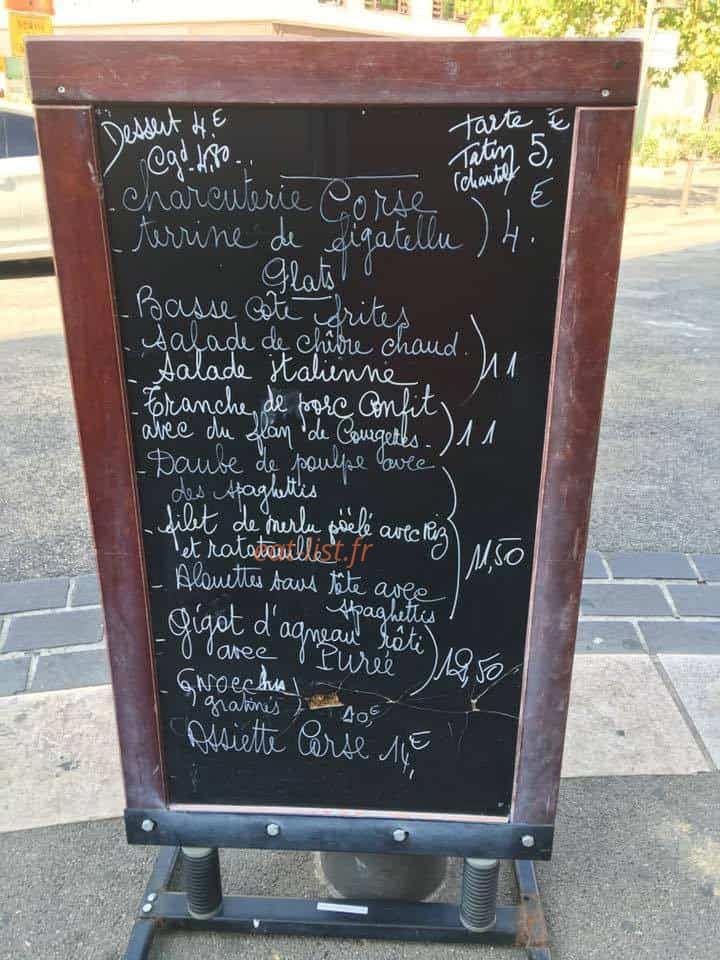 Dessert 4.€
Cgd 4,80
Tarte
Tatin 5,€
(chantely
- Charcuterie Corse
- terrine de figatellu ) 4.€
Plats
- Basse Cote frites
- Salade de chèvre chaud.
- Salade italienne ) 11
- Tranche de porc Confit
avec du flan de Courgettes. ) 11
- Daube de poulpe avec
des spaghettis
- filet de merlu poëlé avec Riz
et ratatouille
eat-list.fr
11,50
- Alouettes sans tête avec
spaghettis
- Gigot d'agneau rôti
avec Purée ) 12,50
- Gnocchis
gratinés ) 10,€
Assiette Corse 14,€